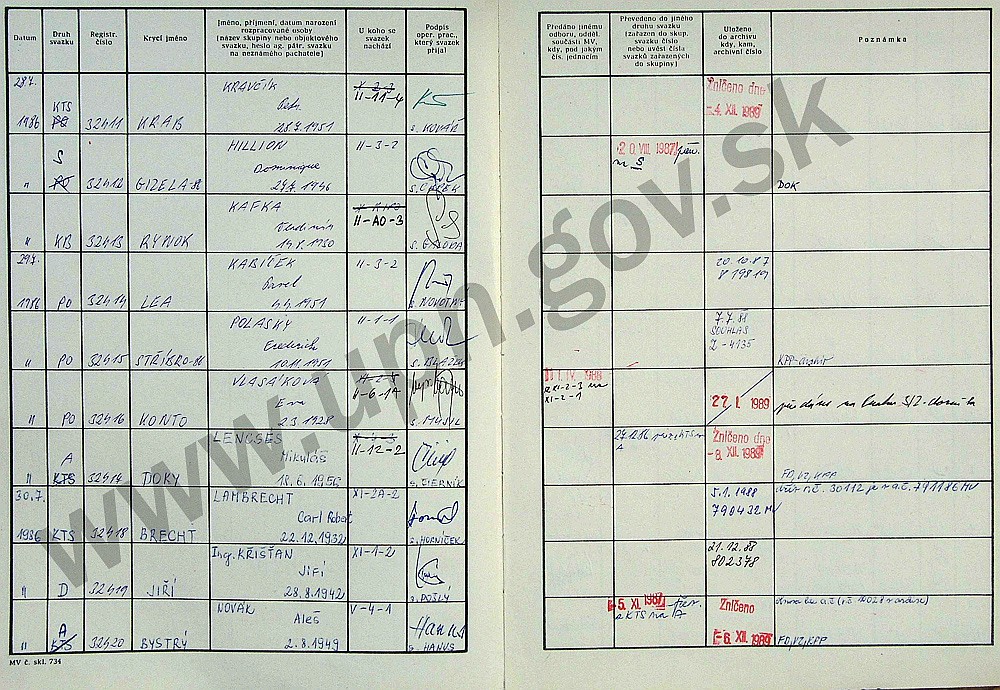 Datum
Druh svazku
Registr. číslo
Krycí jméno
Jméno, příjmení, datum narození
rozpracované osoby
(název skupiny nebo objektového
svazku, heslo ag. pátr. svazku
na neznámého pachatele)
U koho se
svazek
nachází
Podpis
oper. prac.,
který svazek
přijal
Předáno jinému
odboru, odděl.
součásti MV,
kdy, pod jakým
čís. jednacím
Převedeno do jiného
druhu svazku
(zařazen do skup.
svazku číslo
nebo uvést čísla
svazků zařazených
do skupiny)
Uloženo
do archivu
kdy, kam,
archivní číslo
Poznámka
29.7. 1986 KTS 32411 KRAB KRAVČÍK Petr 28.7.1951 II-11-4 s. KOVÁŘ
Zničeno dne
-4. XII. 1989
" S 32412 GIZELA-86 HILLION Dominique 27.7.1956 II-3-2
20. VIII. 1987 na S
DOK
" KB 32413 RYNOK KAFKA Vladimír II-AO-3
29.7. 1986 PO 32414 LEA KABÍČEK Pavel 4.4.1951 II-3-2 s. NOVOTNÝ
20.10.87
819819
" PO 32415 STŘÍBRO-86 POLASKY Frederick 10.11.1951 II-1-1 s. BLAŽEK
7.7.88
SOUHLAS
Z-4135
" PO 32416 KONTO VLASÁKOVA Eva 2.3.1928 II-6-1A s. MUSIL
1. IV. 1988
z XI-2-3 na
XI-2-1
27. I. 1989
" A KTS 32417 DOKY LENCSÉS Mikuláš 18.6.1956 II-12-2 s. ČIERNÍK
27.12.86
A
Zničeno dne
-8. XII. 1989
FO, VZ, KPP
30.7. 1986 KTS 32418 BRECHT LAMBRECHT Carl Robert 22.12.1932 XI-2A-2 s. HORNÍČEK
5.1.1988
790432 MV
" D 32419 JIŘÍ Ing. KŘIŠŤAN Jiří 28.8.1942 XI-1-2 s. POŠLÝ
21.12.88
802378
" A KTS 32420 BYSTRÝ NOVÁK Aleš 2.8.1949 V-4-1 s. HANUS
-5. XI. 1987 z KTS na A
Zničeno
-6. XII. 1989
FO, VZ, KPP
MV č. skl. 734
www.upn.gov.sk